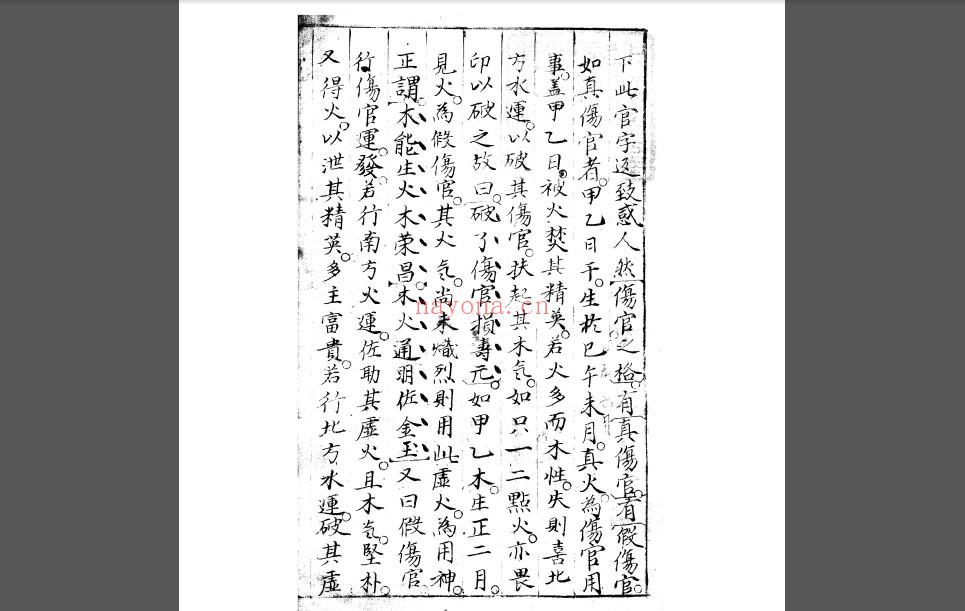 下此官字返致惑人然傷官之格有真傷官有假傷官
如真傷官者甲乙日干生於巳午未月真火為傷官用
事蓋甲乙日被火焚其精英若火多而木性失則喜北
方水運以破其傷官扶起其木氣如只一二點火亦畏
印以破之故曰破了傷官損壽元如甲乙木生正二月
見火為假傷官其火氣尚未熾烈則用此虛火為用神
正謂木能生火木荣昌木火通明佐金玉又曰假傷官
行傷官運發若行南方火運佐助其虛火且木氣堅朴
又得火以泄其精英多主富貴若行北方水運破其虛
nayona.cn